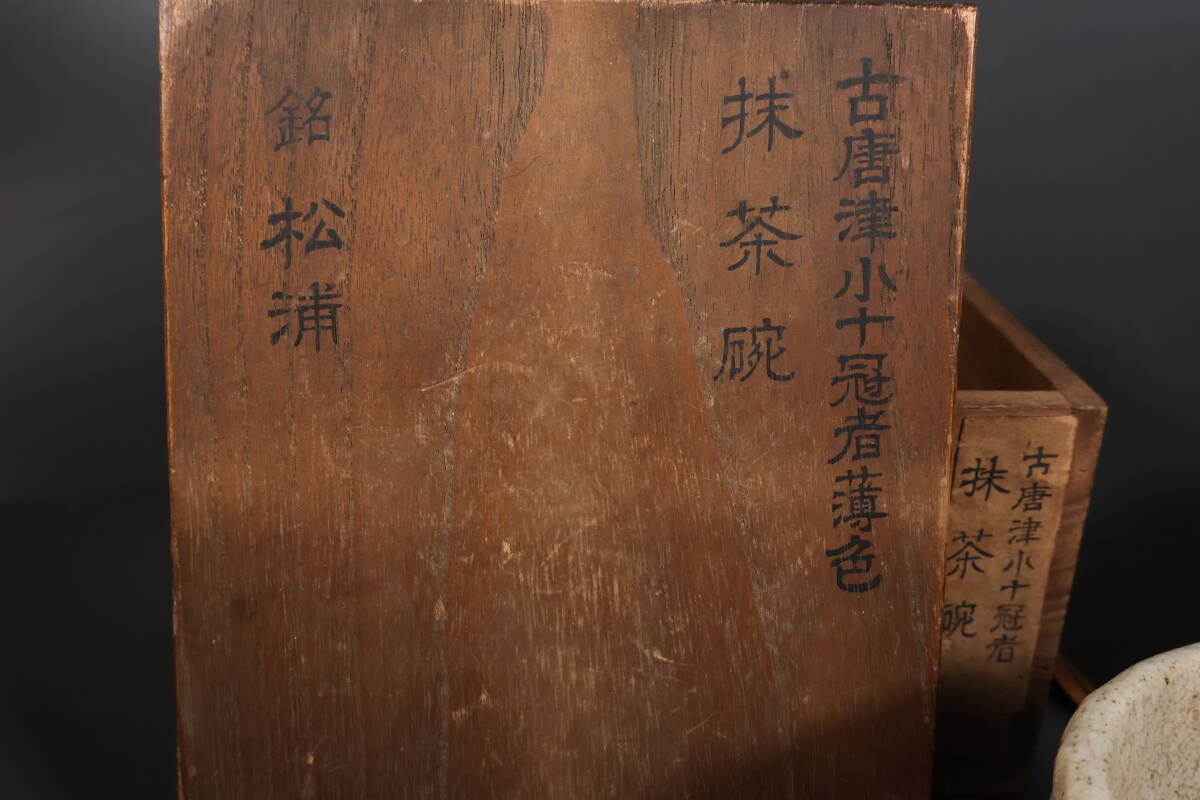 古唐津小十冠者薄色
抹茶碗
銘 松浦
古唐津小十冠者
抹茶碗